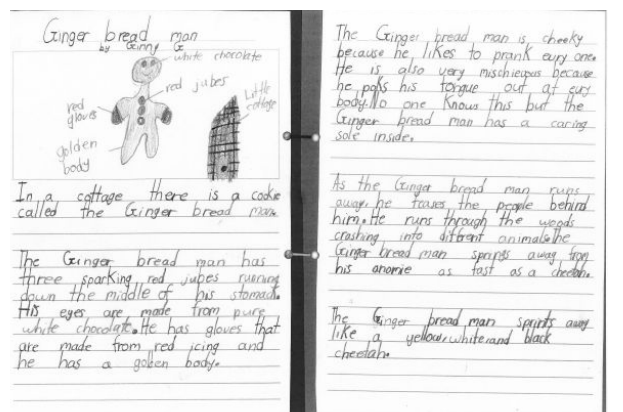 Ginger bread man
by Ginny G
white chocolate
red jubes
red
gloves
Little
cottage
golden
body
In a cottage there is a cookie
called the Ginger bread man.
The Ginger bread man has
three sparking red jubes running
down the middle of his stomach.
His eyes are made from pure
white chocolate. He has gloves that
are made from red icing and
he has a golden body.
The Ginger bread man is cheeky
because he likes to prank eury one.
He is also very mischieuous because
he poks his tongue out at eury
body. No one knows this but the
Ginger bread man has a caring
sole inside.
As the Ginger bread man runs
away, he teases the people behind
him. He runs through the woods
crashing into different animals. The
Ginger bread man sprints away from
his anomie as fast as a cheetah.
The Ginger bread man sprints away
like a yellow, white, and black
cheetah.